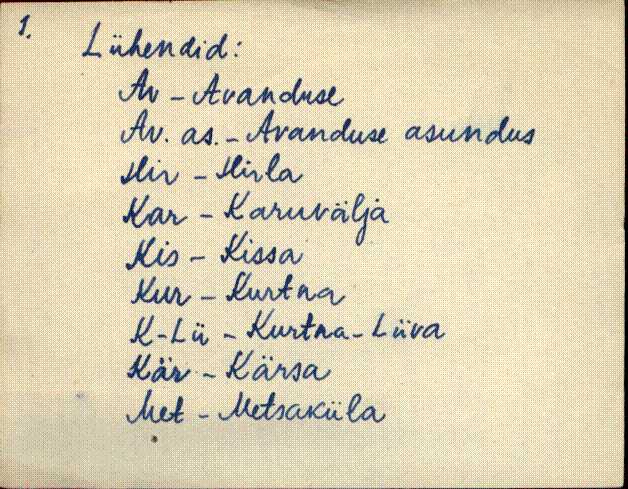 1.
Lühendid:
Av - Avanduse
Av. as. - Avanduse asundus
Hir - Hirla
Kar - Karuvälja
Kis - Kissa
Kur - Kurtna
K-Lü - Kurtna-Lüva
Kär - Kärsa
Met - Metsaküla